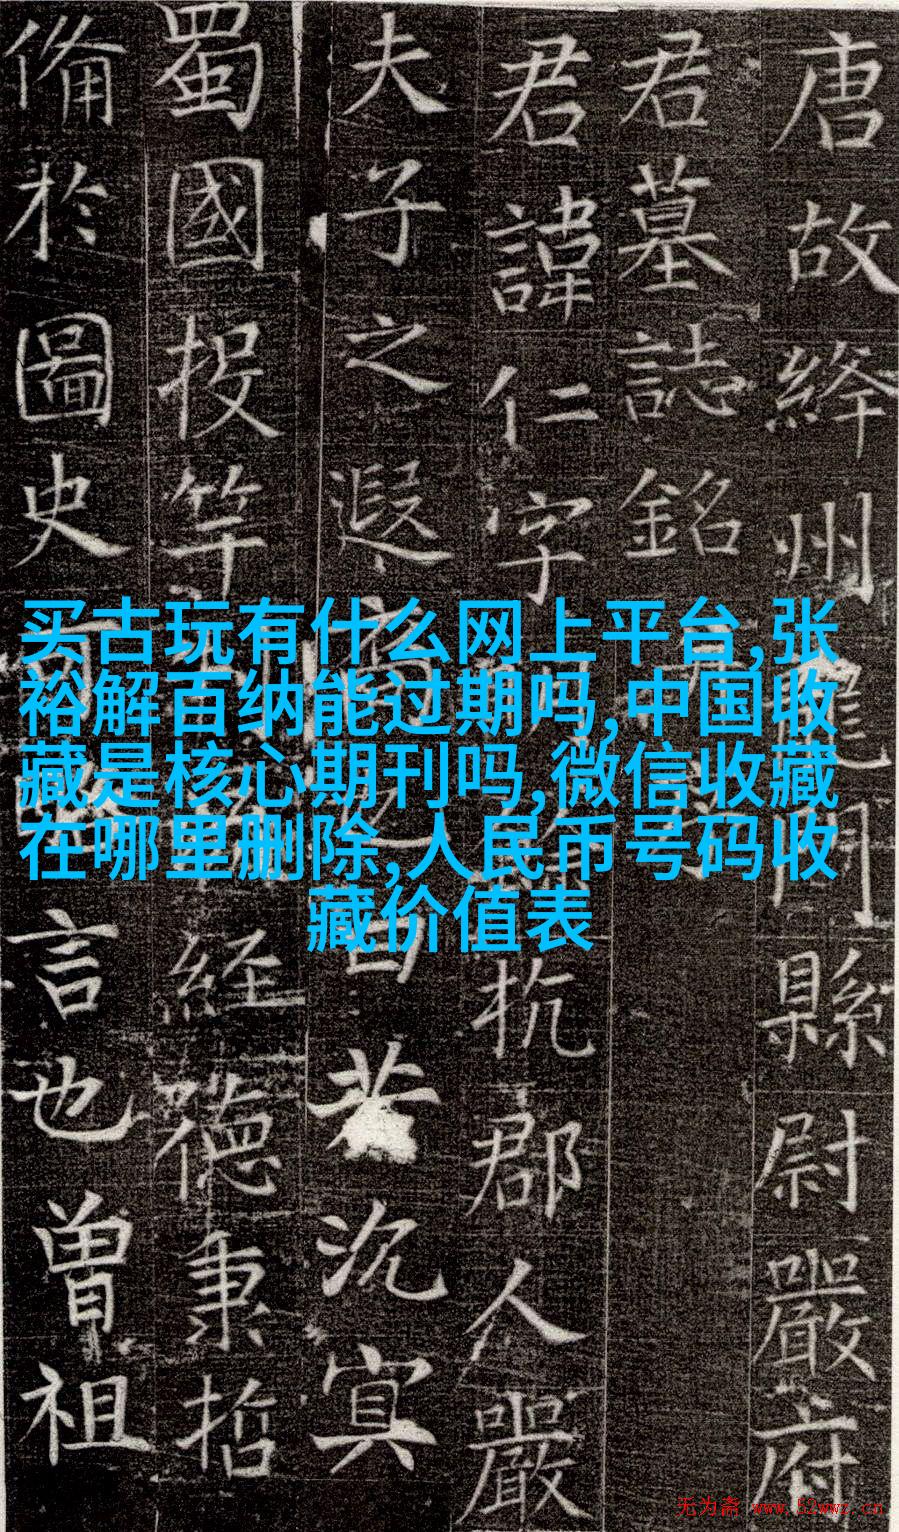 唐故絳州龍門縣尉嚴府
君墓誌銘
君諱仁字杭郡人嚴
夫子之遐沉冥
蜀國投竿經德秉哲
俻於圖史言也曾祖
买古玩有什么网上平台,张
裕解百纳能过期吗,中国收
藏是核心期刊吗,微信收藏
在哪里删除,人民币号码收
藏价值表
无为斋 www.52wwz.cn